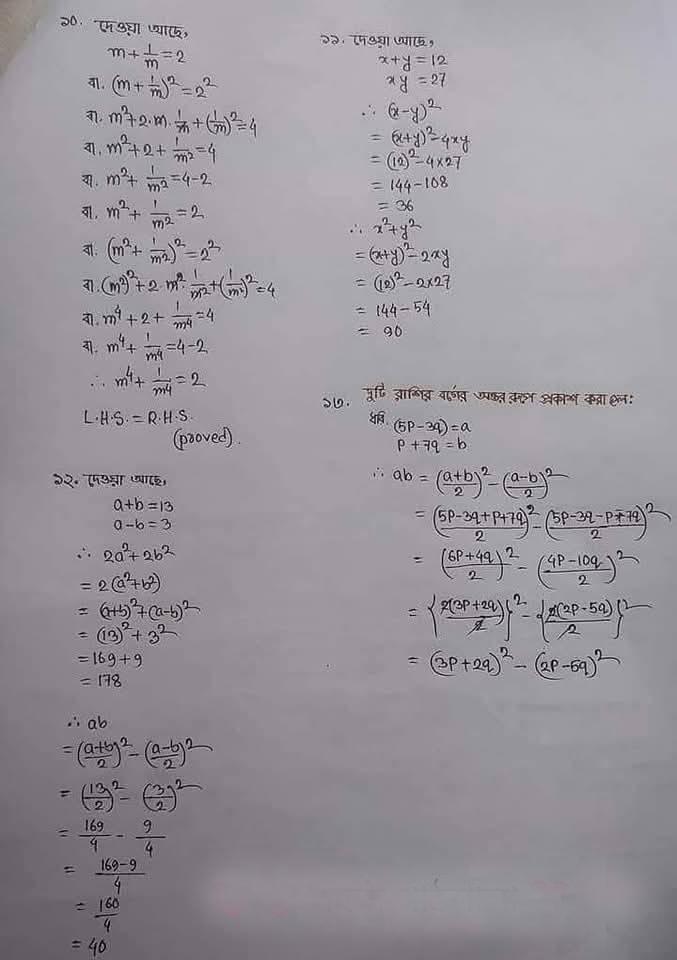 ১০. দেওয়া আছে,
m + 1/m = 2
বা. (m + 1/m)² = 2²
বা. m² + 2·m·1/m + (1/m)² = 4
বা. m² + 2 + 1/m² = 4
বা. m² + 1/m² = 4-2
বা. m² + 1/m² = 2
বা. (m² + 1/m²)² = 2²
বা. (m²)² + 2·m²·1/m² + (1/m²)² = 4
বা. m⁴ + 2 + 1/m⁴ = 4
বা. m⁴ + 1/m⁴ = 4-2
∴ m⁴ + 1/m⁴ = 2
L.H.S. = R.H.S.
(proved).
১২. দেওয়া আছে,
a+b = 13
a-b = 3
∴ 2a² + 2b²
= 2(a²+b²)
= (a+b)² + (a-b)²
= (13)² + 3²
= 169 + 9
= 178
∴ ab
= ((a+b)/2)² - ((a-b)/2)²
= (13/2)² - (3/2)²
= 169/4 - 9/4
= (169-9)/4
= 160/4
= 40
১১. দেওয়া আছে,
x+y = 12
xy = 27
∴ (x-y)²
= (x+y)² - 4xy
= (12)² - 4×27
= 144 - 108
= 36
∴ x² + y²
= (x+y)² - 2xy
= (12)² - 2×27
= 144 - 54
= 90
১৩. দুটি রাশির বর্গের অন্তর রূপে প্রকাশ করা হল:
ধরি, (5P-3q) = a
P + 7q = b
∴ ab = ((a+b)/2)² - ((a-b)/2)²
= ((5P-3q+P+7q)/2)² - ((5P-3q-P-7q)/2)²
= ((6P+4q)/2)² - ((4P-10q)/2)²
= {2(3P+2q)/2}² - {2(2P-5q)/2}²
= (3P+2q)² - (2P-5q)²